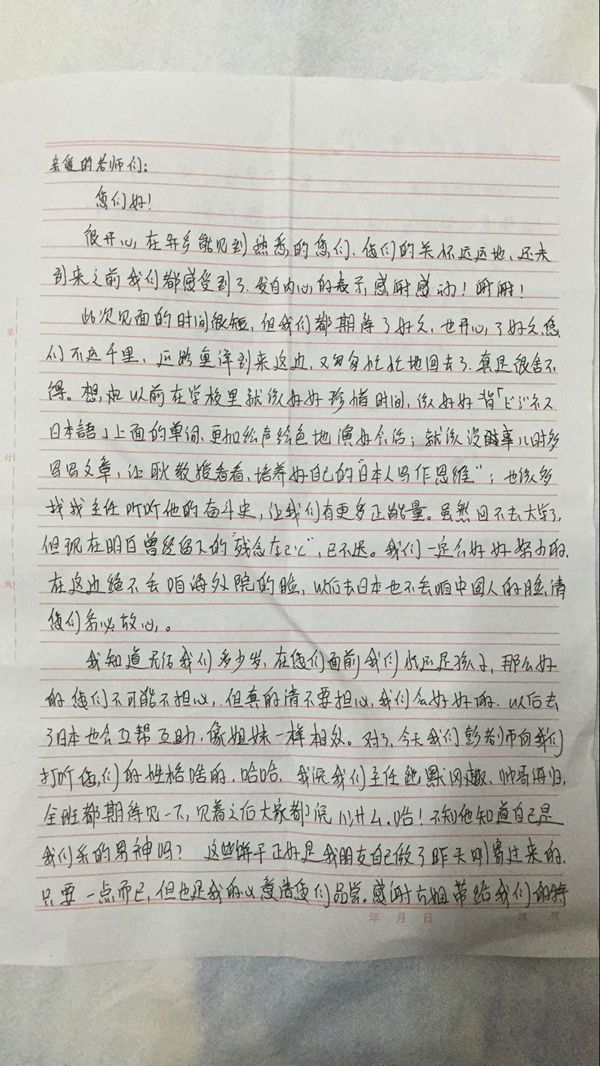 亲爱的老师们:
您们好!
很开心,在异乡能见到熟悉的您们、您们的关怀远远地、还未
到来之前我们都感受到了.发自内心的表示感谢感动!谢谢!
此次见面的时间很短.但我们都期待了好久,也开心了好久.您
们不远千里、迢迢 到来这边,又匆匆忙忙地回去了.真是很舍不
得。想起以前在学校里就该好好珍惜时间,该好好背「ビジネス
日本語」上面的单词.更加绘声绘色地演好会话;就该没啥事儿时多
写写文章,让耿教授看看、培养好自己的"日本人写作思维";也该多
找找主任听听他的奋斗史,让我们有更多正能量。虽然回不去大学了,
但现在明白曾经留下的"残念なこと",已不迟。我们一定会好好努力的.
在这边绝不丢咱海外院的脸,以后去日本也不丢咱中国人的脸,请
您们务必放心。
我知道无论我们多少岁,在您们面前我们依还是孩子,那么好
的您们不可能不担心,但真的请不要担心,我们会好好的.以后去
了日本也会互帮互助.像姐妹一样相处。对了,今天我们彭老师向我们
打听您们的性格啥的.哈哈、我说我们主任幽默风趣、帅哥海归,
全班都期待见一下,见着之后大家都说 什么.哈!不知他知道自己是
我们系的男神吗? 这些饼干正好是我朋友自己做了昨天刚寄过来的.
只要一点而已,但也是我的心意请您们品尝。感谢 姐带给我们的特
年 月 日